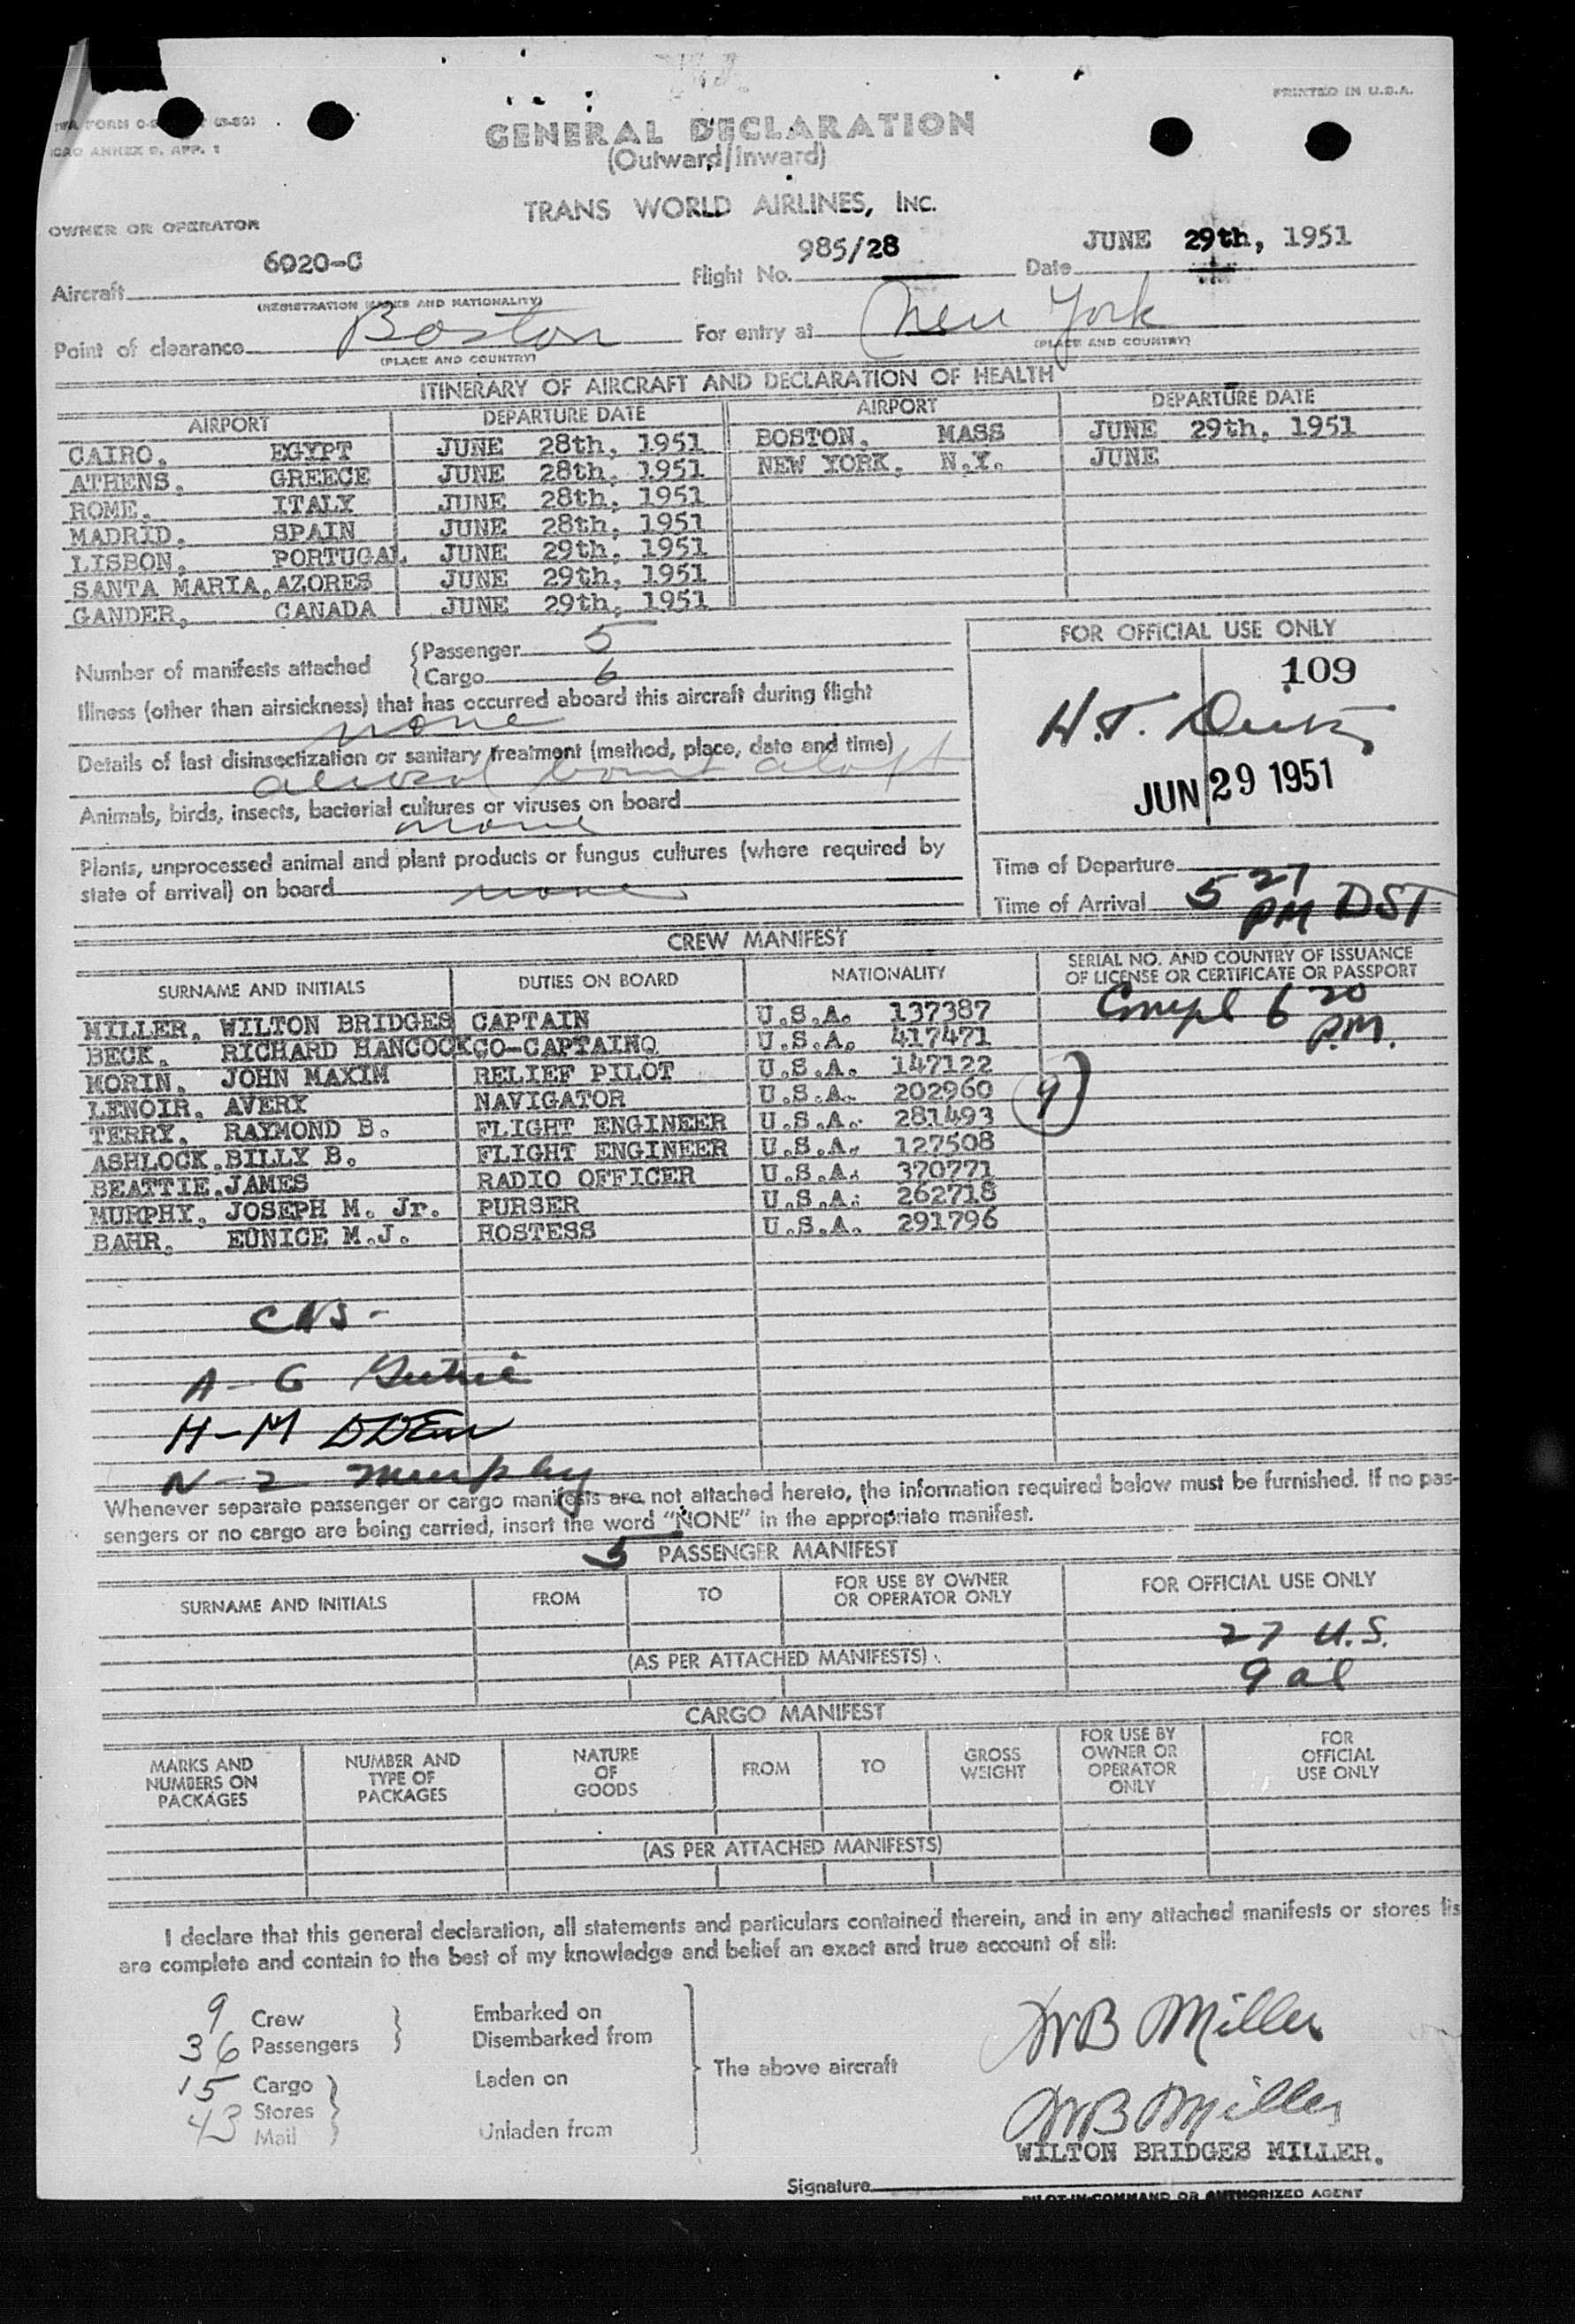 PRINTED IN U.S.A.
ICAO ANNEX 9, APP. 1
GENERAL DECLARATION
(Outward/Inward)
TRANS WORLD AIRLINES, INC.
OWNER OR OPERATOR
Aircraft 6020-C Flight No. 985/28 Date JUNE 29th, 1951
(REGISTRATION MARKS AND NATIONALITY)
Point of clearance Boston For entry at New York
(PLACE AND COUNTRY) (PLACE AND COUNTRY)
ITINERARY OF AIRCRAFT AND DECLARATION OF HEALTH
AIRPORT DEPARTURE DATE AIRPORT DEPARTURE DATE
CAIRO, EGYPT JUNE 28th, 1951 BOSTON, MASS JUNE 29th, 1951
ATHENS, GREECE JUNE 28th, 1951 NEW YORK, N.Y. JUNE
ROME, ITALY JUNE 28th, 1951
MADRID, SPAIN JUNE 28th, 1951
LISBON, PORTUGAL JUNE 29th, 1951
SANTA MARIA, AZORES JUNE 29th, 1951
GANDER, CANADA JUNE 29th, 1951
Number of manifests attached
Passenger 5
Cargo 6
Illness (other than airsickness) that has occurred aboard this aircraft during flight
none
Details of last disinsectization or sanitary treatment (method, place, date and time)
aloft
Animals, birds, insects, bacterial cultures or viruses on board
none
Plants, unprocessed animal and plant products or fungus cultures (where required by
state of arrival) on board none
FOR OFFICIAL USE ONLY
109
H.T.
JUN 29 1951
Time of Departure
Time of Arrival 5 27 PM DST
CREW MANIFEST
SURNAME AND INITIALS DUTIES ON BOARD NATIONALITY SERIAL NO. AND COUNTRY OF ISSUANCE
OF LICENSE OR CERTIFICATE OR PASSPORT
MILLER, WILTON BRIDGES CAPTAIN U.S.A. 137387 Compl 6 20 P.M.
BECK, RICHARD HANCOCK CO-CAPTAINQ U.S.A. 417471
MORIN, JOHN MAXIM RELIEF PILOT U.S.A. 147122
LENOIR, AVERY NAVIGATOR U.S.A. 202960 9
TERRY, RAYMOND B. FLIGHT ENGINEER U.S.A. 281493
ASHLOCK.BILLY B. FLIGHT ENGINEER U.S.A. 127508
BEATTIE.JAMES RADIO OFFICER U.S.A. 370771
MURPHY, JOSEPH M. Jr. PURSER U.S.A. 262718
BAHR, EUNICE M.J. HOSTESS U.S.A. 291796
CNS -
A - G Guthrie
H - M
N - Z Murphy
Whenever separate passenger or cargo manifests are not attached hereto, the information required below must be furnished. If no pas-
sengers or no cargo are being carried, insert the word "NONE" in the appropriate manifest.
5 PASSENGER MANIFEST
SURNAME AND INITIALS FROM TO FOR USE BY OWNER
OR OPERATOR ONLY FOR OFFICIAL USE ONLY
27 U.S.
(AS PER ATTACHED MANIFESTS)
9 al
CARGO MANIFEST
MARKS AND
NUMBERS ON
PACKAGES
NUMBER AND
TYPE OF
PACKAGES
NATURE
OF
GOODS
FROM
TO
GROSS
WEIGHT
FOR USE BY
OWNER OR
OPERATOR
ONLY
FOR
OFFICIAL
USE ONLY
(AS PER ATTACHED MANIFESTS)
I declare that this general declaration, all statements and particulars contained therein, and in any attached manifests or stores lis
are complete and contain to the best of my knowledge and belief an exact and true account of all:
9 Crew
36 Passengers
Embarked on
Disembarked from
15 Cargo
Stores
43 Mail
Laden on
Unladen from
The above aircraft
WB Miller
WB Miller
WILTON BRIDGES MILLER.
Signature
PILOT-IN-COMMAND OR AUTHORIZED AGENT